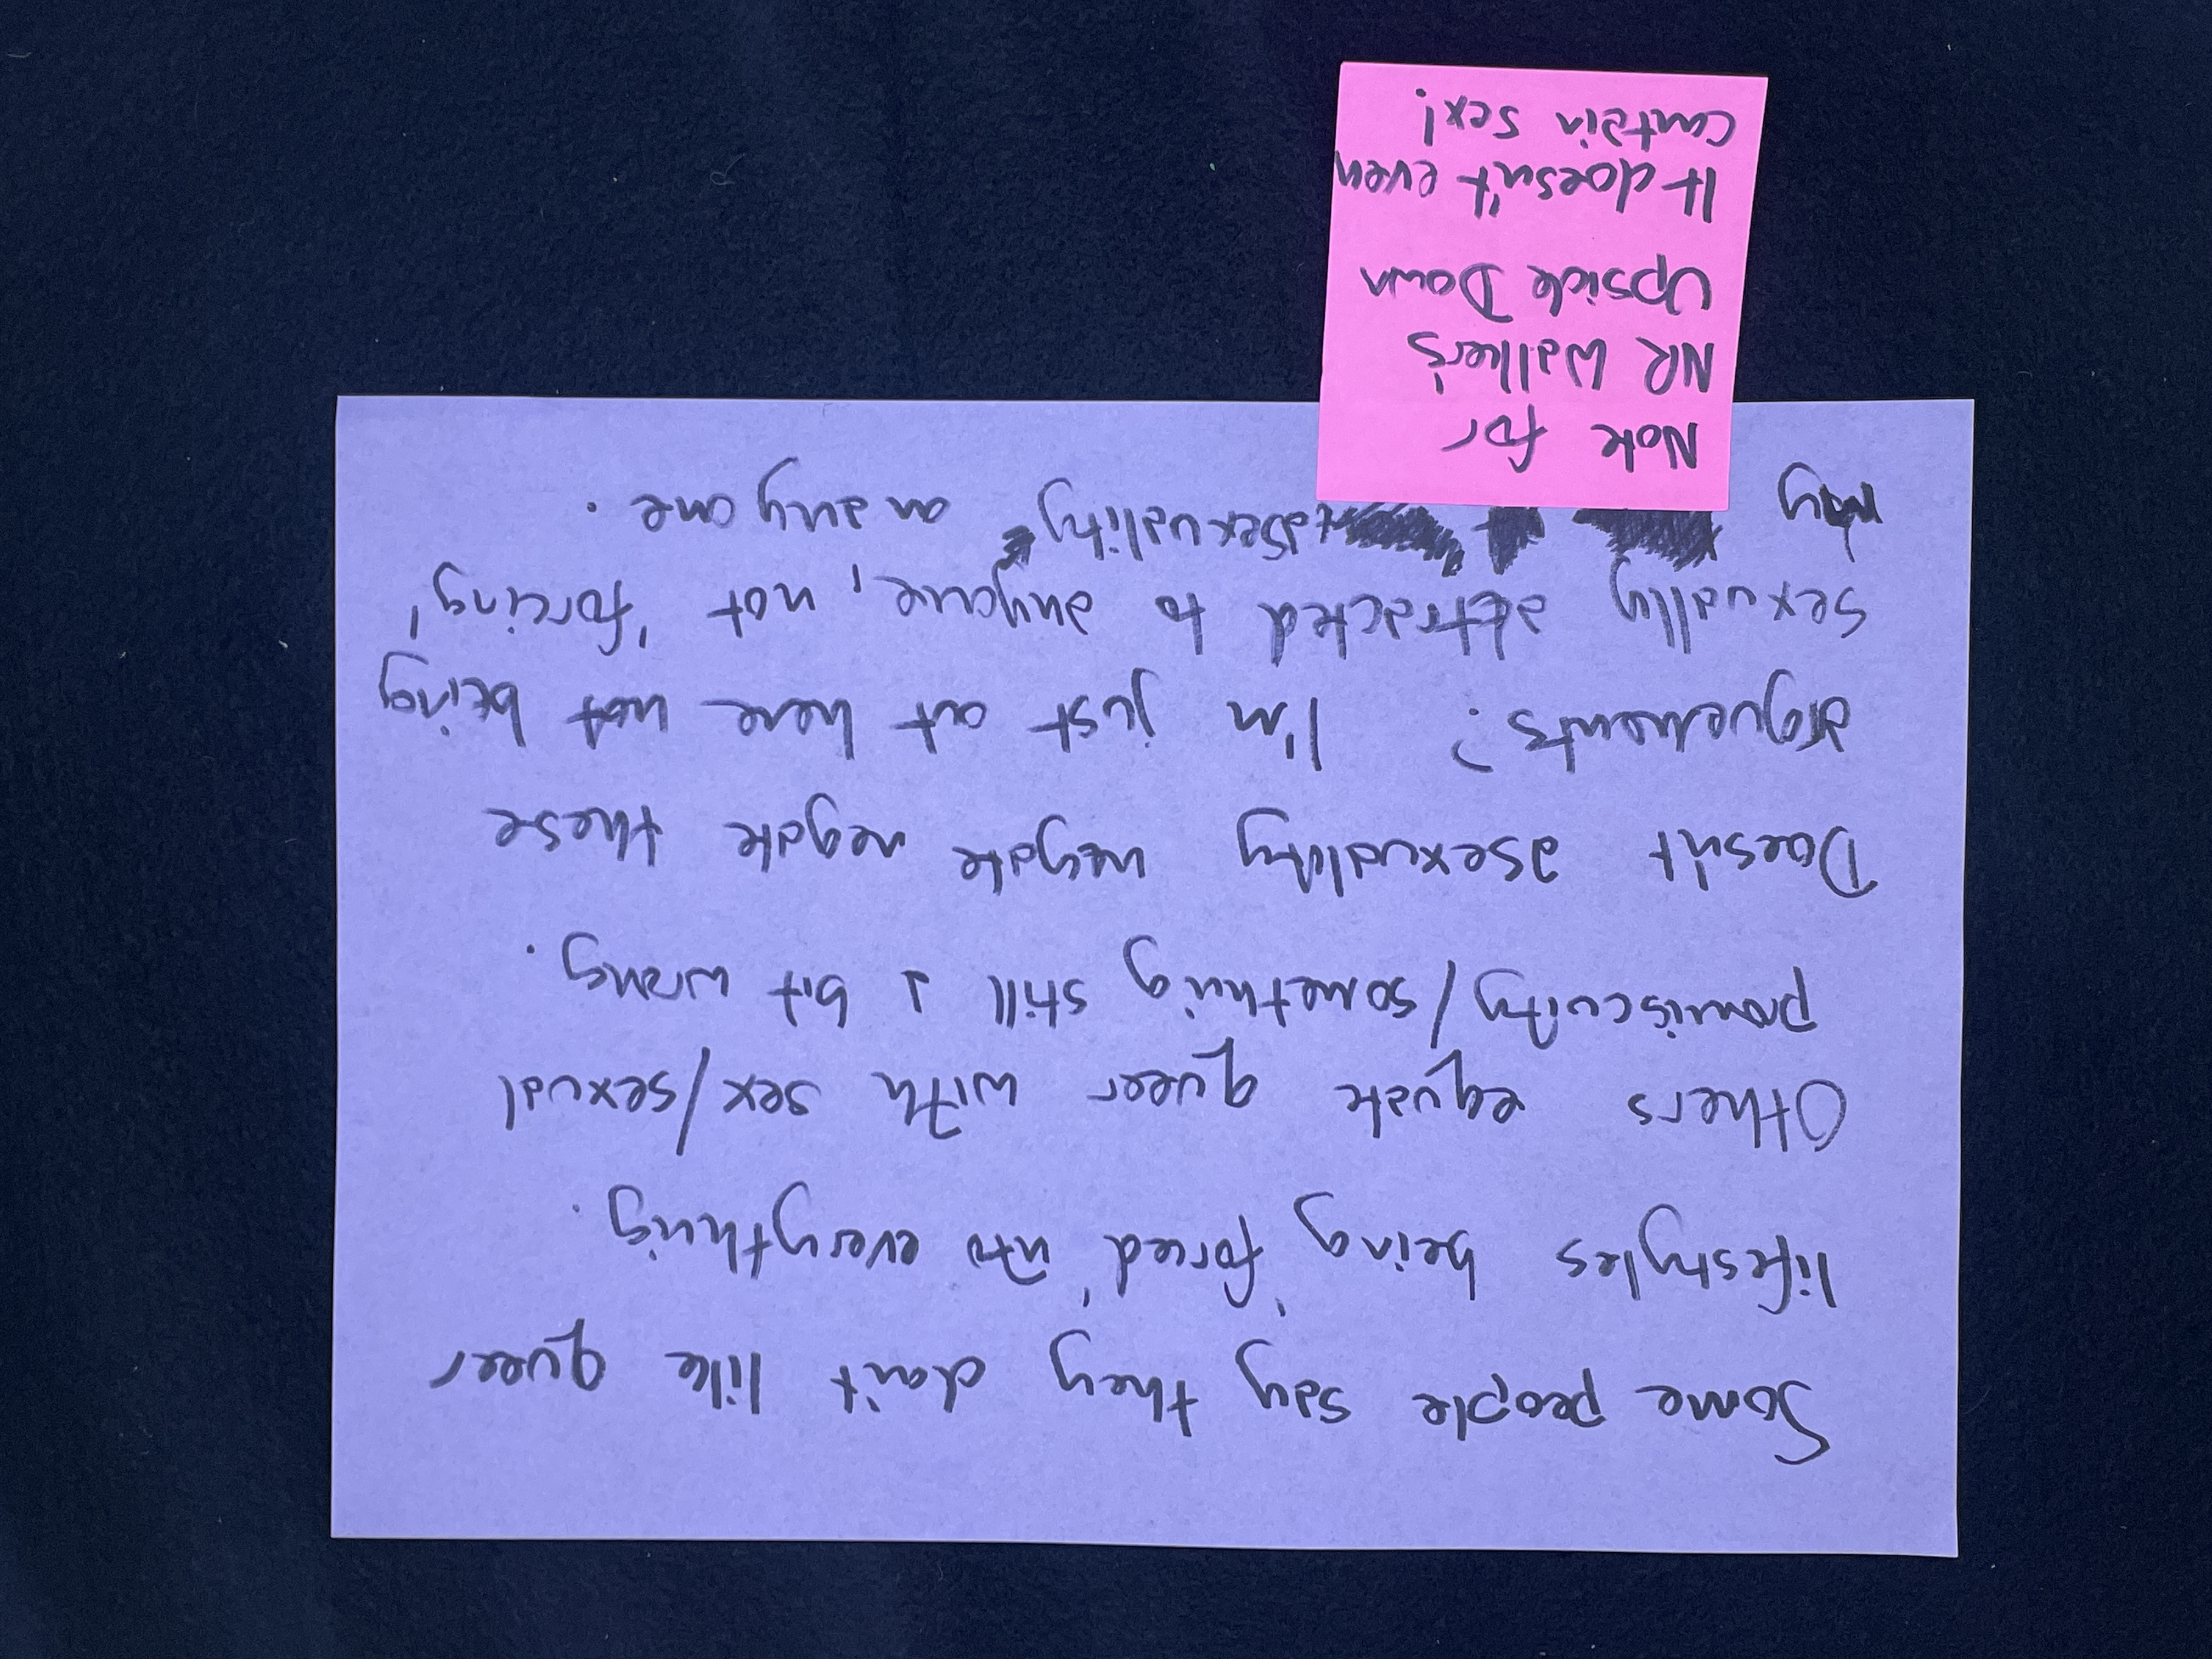 Some people say they don't like queer
lifestyles being 'forced' into everything.
Others equate queer with sex/sexual
promiscuity/something still a bit wrong.
Doesn't asexuality negate negate these
arguements? I'm just out here not being
sexually attracted to anyone, not 'forcing'
my asexuality on anyone.
Note for
NR Walker's
Upside Down
It doesn't even
contain sex!